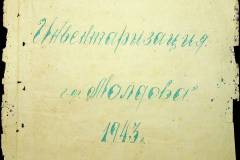 Инвентаризация
см Молдова
1943.